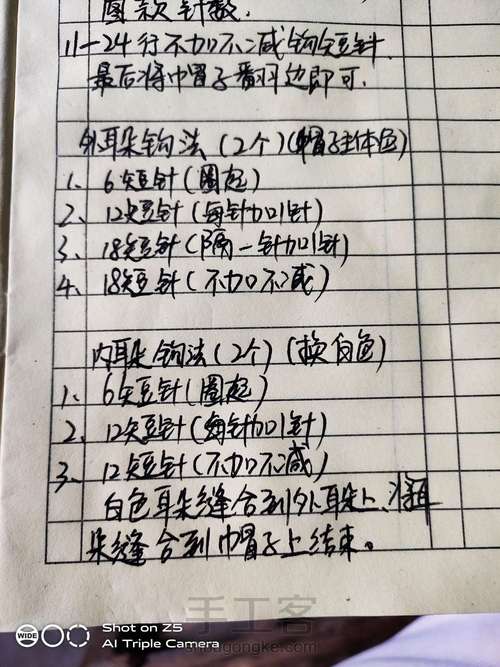 图款针数.
11—24行不加不减钩短针
最后将帽子翻卷边即可.
外耳朵钩法(2个)(帽子主体色)
1、6短针(圈起)
2、12短针(每针加1针)
3、18短针(隔一针加1针)
4、18短针(不加不减)
内耳朵钩法(2个)(换白色)
1、6短针(圈起)
2、12短针(每针加1针)
3、12短针(不加不减)
白色耳朵缝合到外耳朵上、将耳
朵缝合到帽子上结束。
手工客
shougongke.com
WIDE
Shot on Z5
AI Triple Camera